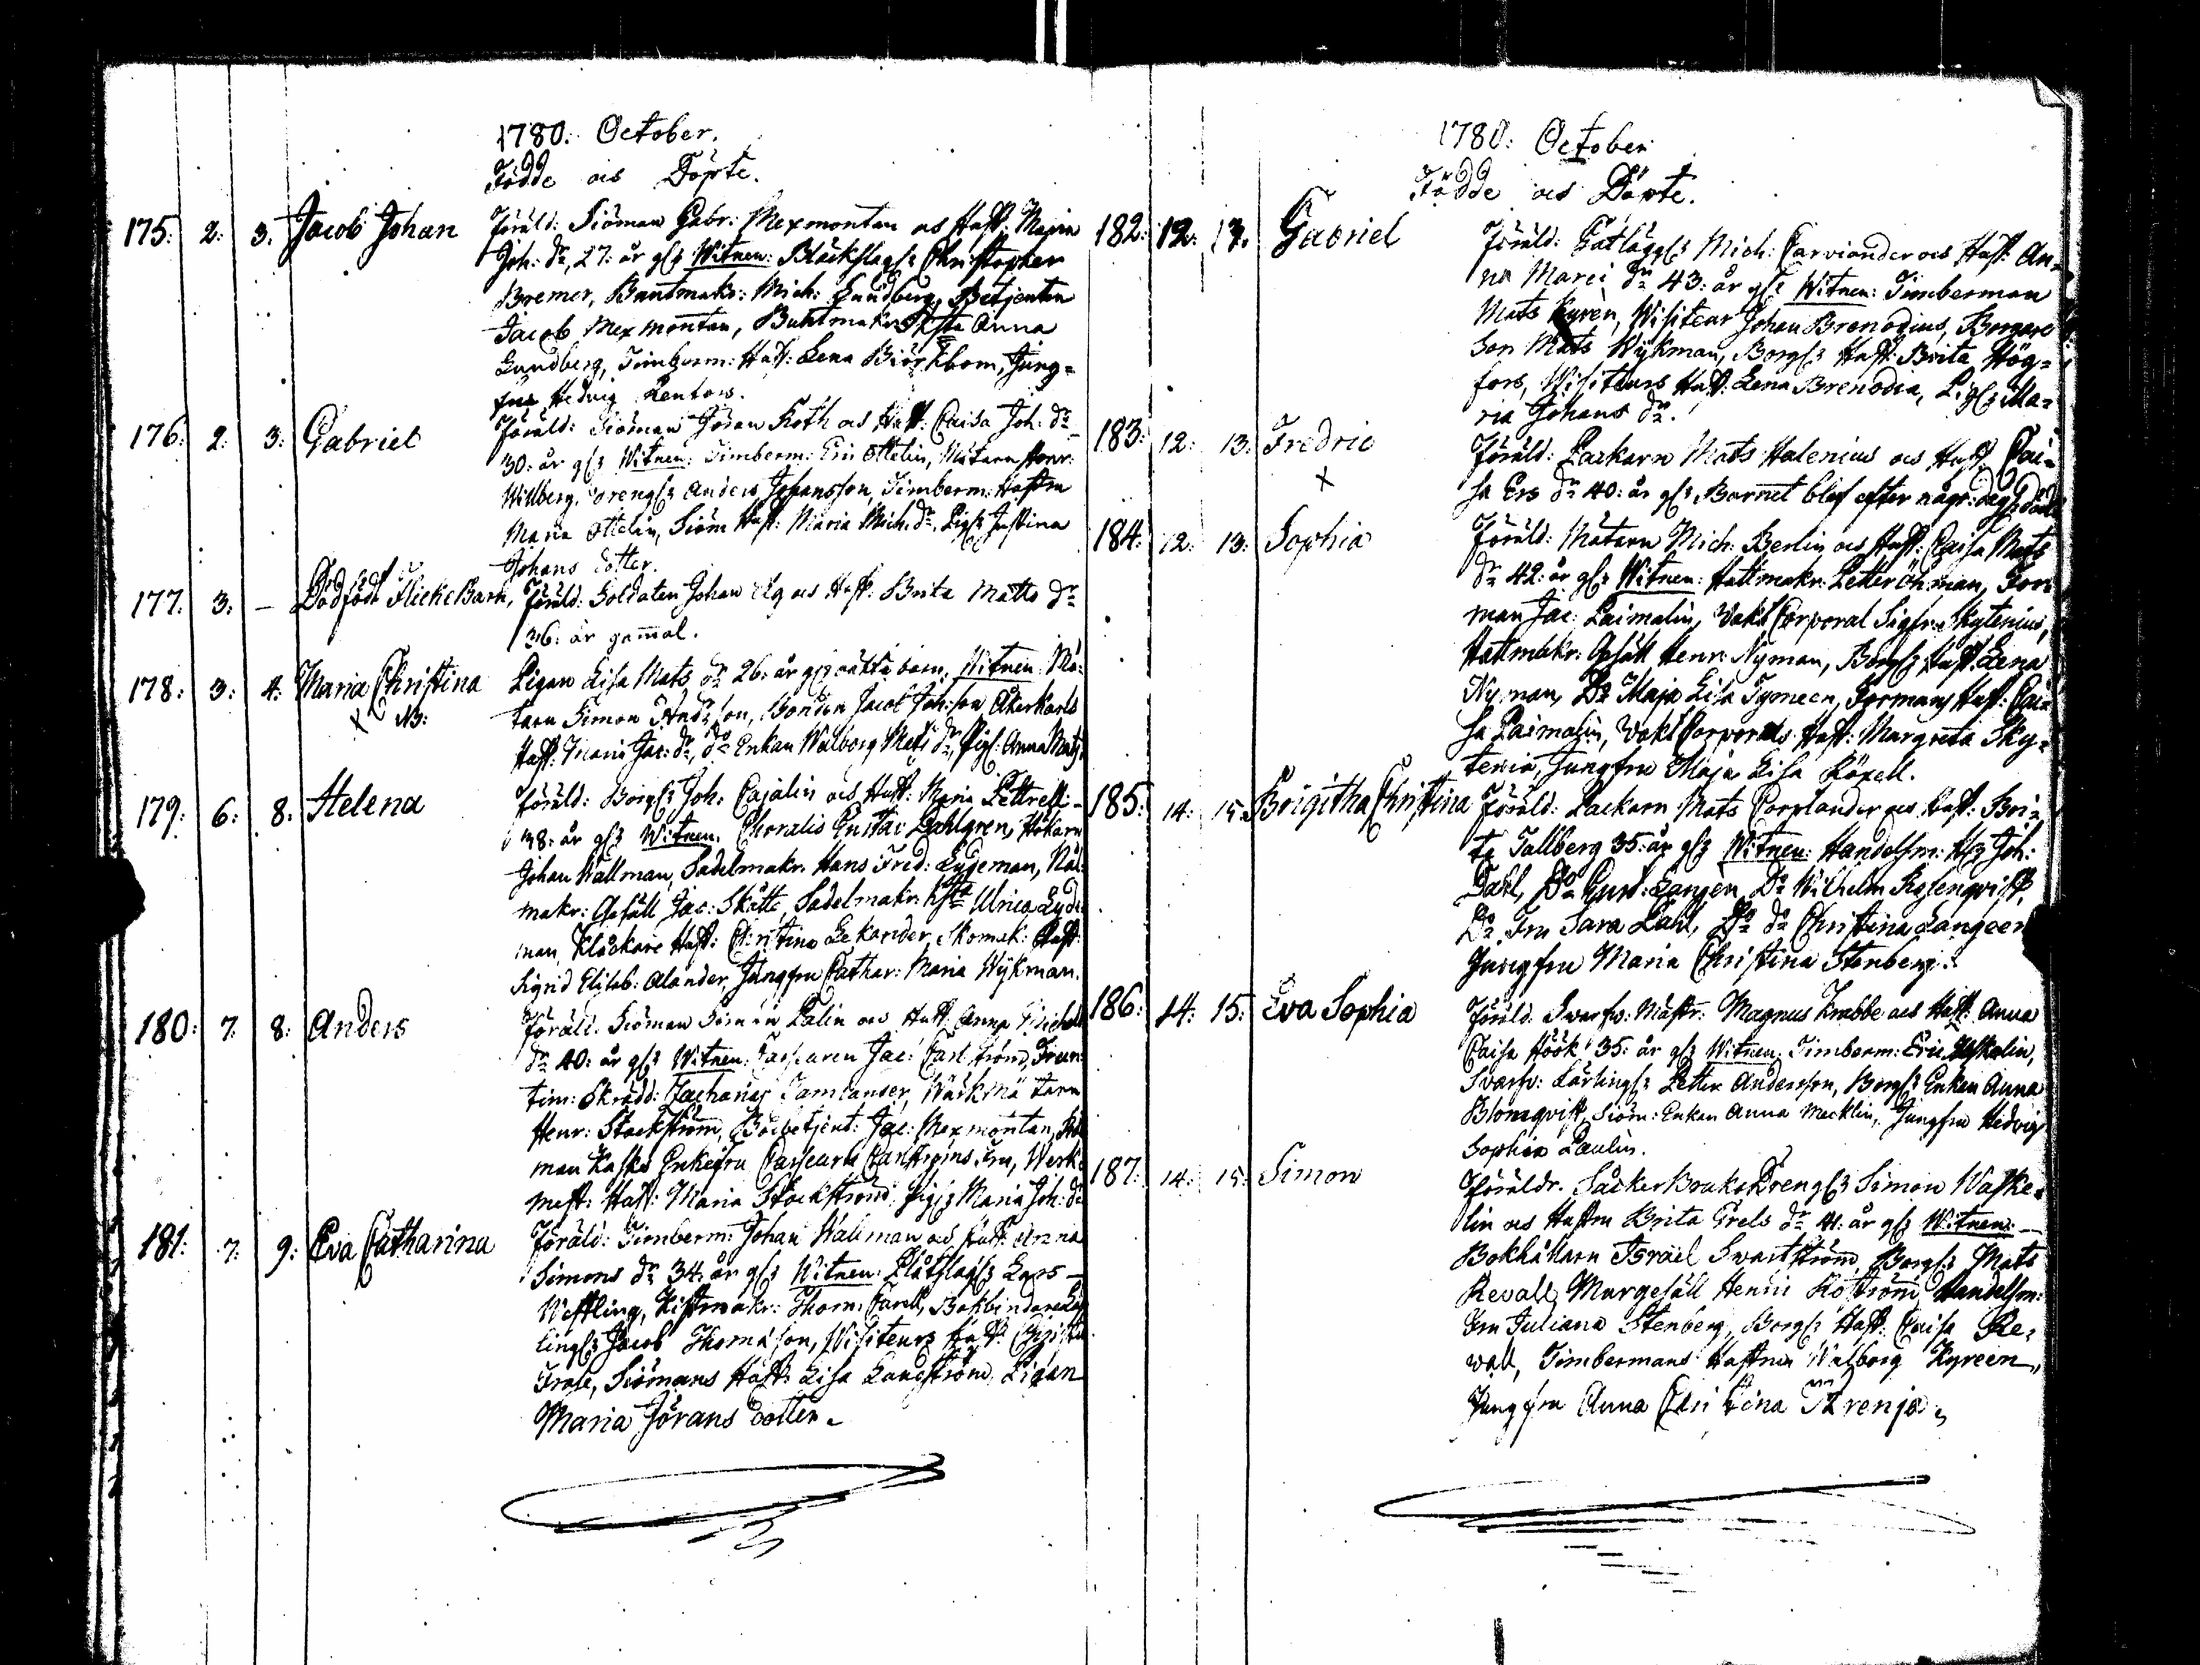 1780. October.
Födde och Döpte.
175: 2: 3. Jacob Johan Föräld: Siöman Gabr: Mexmontan och Hust: Maria
Joh: dr, 27: år gl: Witnen: Bläckslag: Christopher
Bremer, Buntmakr: Mich: Lundberg, Betjenten
Jacob Mexmontan, Buntmakr Anna
Lundberg, Timberm: Hust: Lena Biörkbom, Jung=
fru Hedvig
176: 2: 3: Gabriel Föräld: Siöman Jöran Roth och Hust: Caisa Joh: dr
30: år gl: Witnen: Timberm: Eric Ottelin, Mätarn Henr:
Willberg, Drengs: Anders Johansson, Timberm: Hustru
Maria Ottelin, Siöm Hust: Maria Mich: dr, Pig: Justina
Johans dotter.
177: 3: — Dödfödt FlickeBarn, Föräld: Soldaten Johan Elg och Hust: Brita Matts dr
36: år gammal.
178: 3: 4: Maria Christina Pigan Lisa Mats dr 26: år gl: oäkta barn. Witnen: Mä=
x NB: tarn Simon Anderson, Bonden Jacob Johsson Åkerkarls
Hust: Maria Jac: dr, do Enkan Walborg Mats dr, Pig: Anna Mats
179: 6: 8: Helena Föräld: Borg: Joh: Cajalin och Hust: Maria Pettrelli
38: år gl: Witnen: Choralis Gustav Dahlgren, Hökarn
Johan Wallman, Sadelmakr: Hans Fred: Lydeman, Nål=
makr: Gesäll Jac: Skätte, Sadelmakr: Ulrica Lyde
man, Klockare Hust: Christina Lekander, Skomak: Hust:
Sigrid Elisab: Alander, Jungfru Cathar: Maria Wykman.
180: 7: 8: Anders Föräld: Siöman Simon Palin och Hust: Anna Michels
dr 40: år gl: Witnen: Jac:
tim: Skrädd: Zacharias Tamlander, Wärkmätarn
Henr: Stockström, Jac: Mexmontan,
man
mest: Hust: Maria Stockström, Pig: Maria Joh: dr
181: 7: 9: Eva Catharina Föräld: Timberm: Johan Wallman och Hust: Anna
Simons dr 34: år gl: Witnen: Plåtslag: Lars
Westling, Thom: Bokbindare
lings: Jacob Thomasson, Visiteurs Hust: Christin
Siömans Hust: Lisa Landström, Pigan
Maria Jörans dotter.
1780: October
Födde och Döpte.
182: 12: 13. Gabriel Föräld: Mich: Carviander och Hust: An=
na Marci dr 43: år gl: Witnen: Timberman
Mats Kyrèn, Visiteur Johan Brenodius, Borgare
Son Mats Wykman, Borg: Hust: Brita Hög=
fors, Visiteurs Hust: Lena Brenodia, Pig: Ma=
ria Johans dr.
183: 12: 13: Fredric Föräld: Packarn Mats Halenius och Hust: Cai=
x sa Ers dr 40: år gl: Barnet blef efter någr: dag: död
184: 12: 13: Sophia Föräld: Mätarn Mich: Berlin och Hust: Caisa Mats
dr 42: år gl: Witnen: Hattmakr: Petter Öhman, For=
man Jac: Paimalin, Vakt Corporal Sigfr: Skytenius,
Hattmakr: Gesäll Henr: Nyman, Borg: Hust: Lena
Nyman, Do Maja Lisa Tymeen, Formans Hust: Cai=
sa Paimalin, Vakt Corporals Hust: Margreta Sky=
tenia, Jungfru Maja Lisa
185: 14: 15: Brigitha Christina Föräld: Packarn Mats Corplander och Hust: Bri=
ta Tallberg 35: år gl: Witnen: Handelsm: Joh:
Dahl, Do Gust: Langèn, Do Wilhelm
Do Fru Sara Dahl, Do do Christina Langeen
Jungfru Maria Christina Stenberg.
186: 14: 15: Eva Sophia Föräld: Svarfv: Mästr: Magnus Krabbe och Hust: Anna
Caisa Höök 35: år gl: Witnen: Timberm: Eric
Svarfv: Lärlings: Petter Andersson, Borg: Enkan Anna
Blomqvist, Siöm: Enkan Anna Mecklin, Jungfru Hedvig
Sophia Paulin.
187: 14: 15: Simon Föräldr. SåckerBruks Dreng: Simon Waske=
lin och Hustru Brita Grels dr 41: år gl: Witnen:
Bokhållarn Israel Svartström, Borg: Mats
Revall, Murgesäll Henric Roström, Handelsm:
Fru Juliana Stenberg, Borg: Hust: Caisa Re=
vall, Timbermans Hustrun Walborg Kyreen,
Jungfru Anna Christina